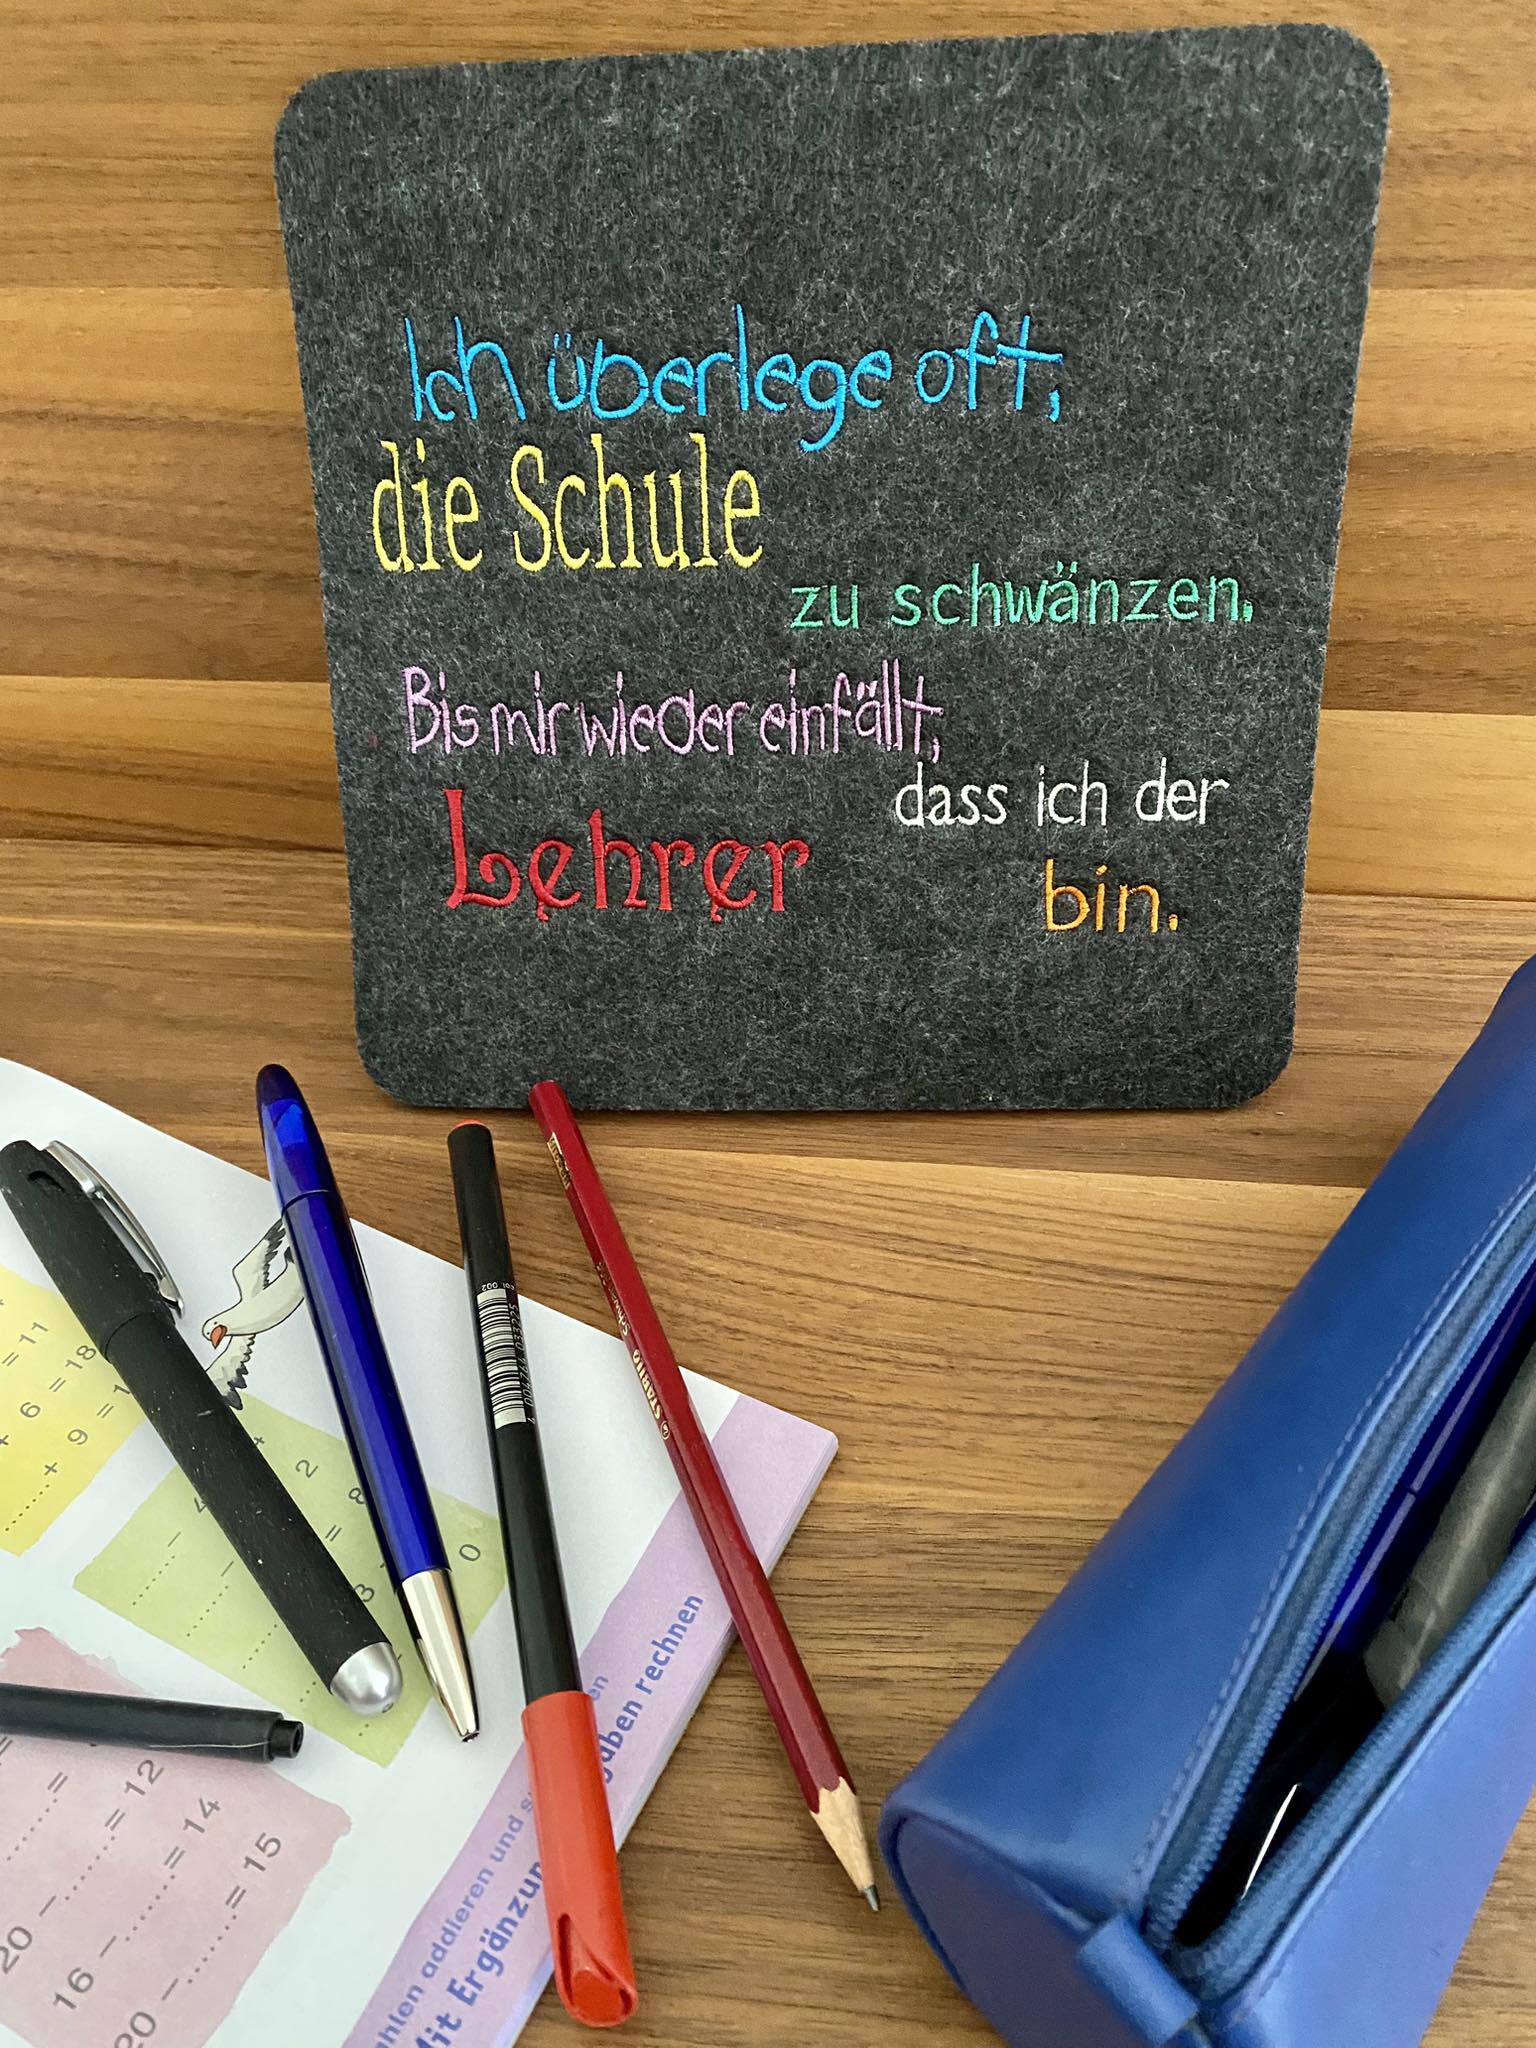 Ich überlege oft,
die Schule
zu schwänzen.
Bis mir wieder einfällt,
dass ich der
Lehrer
bin.
= 11
6 = 18
+ 9 = 1
+
2
8
=
3
0
= 12
= 14
20 – = 15
16 –
20 –
addieren und
Mit Ergänzun
rechnen
STABILO
Schwan
4 006764 033225
Col. 002